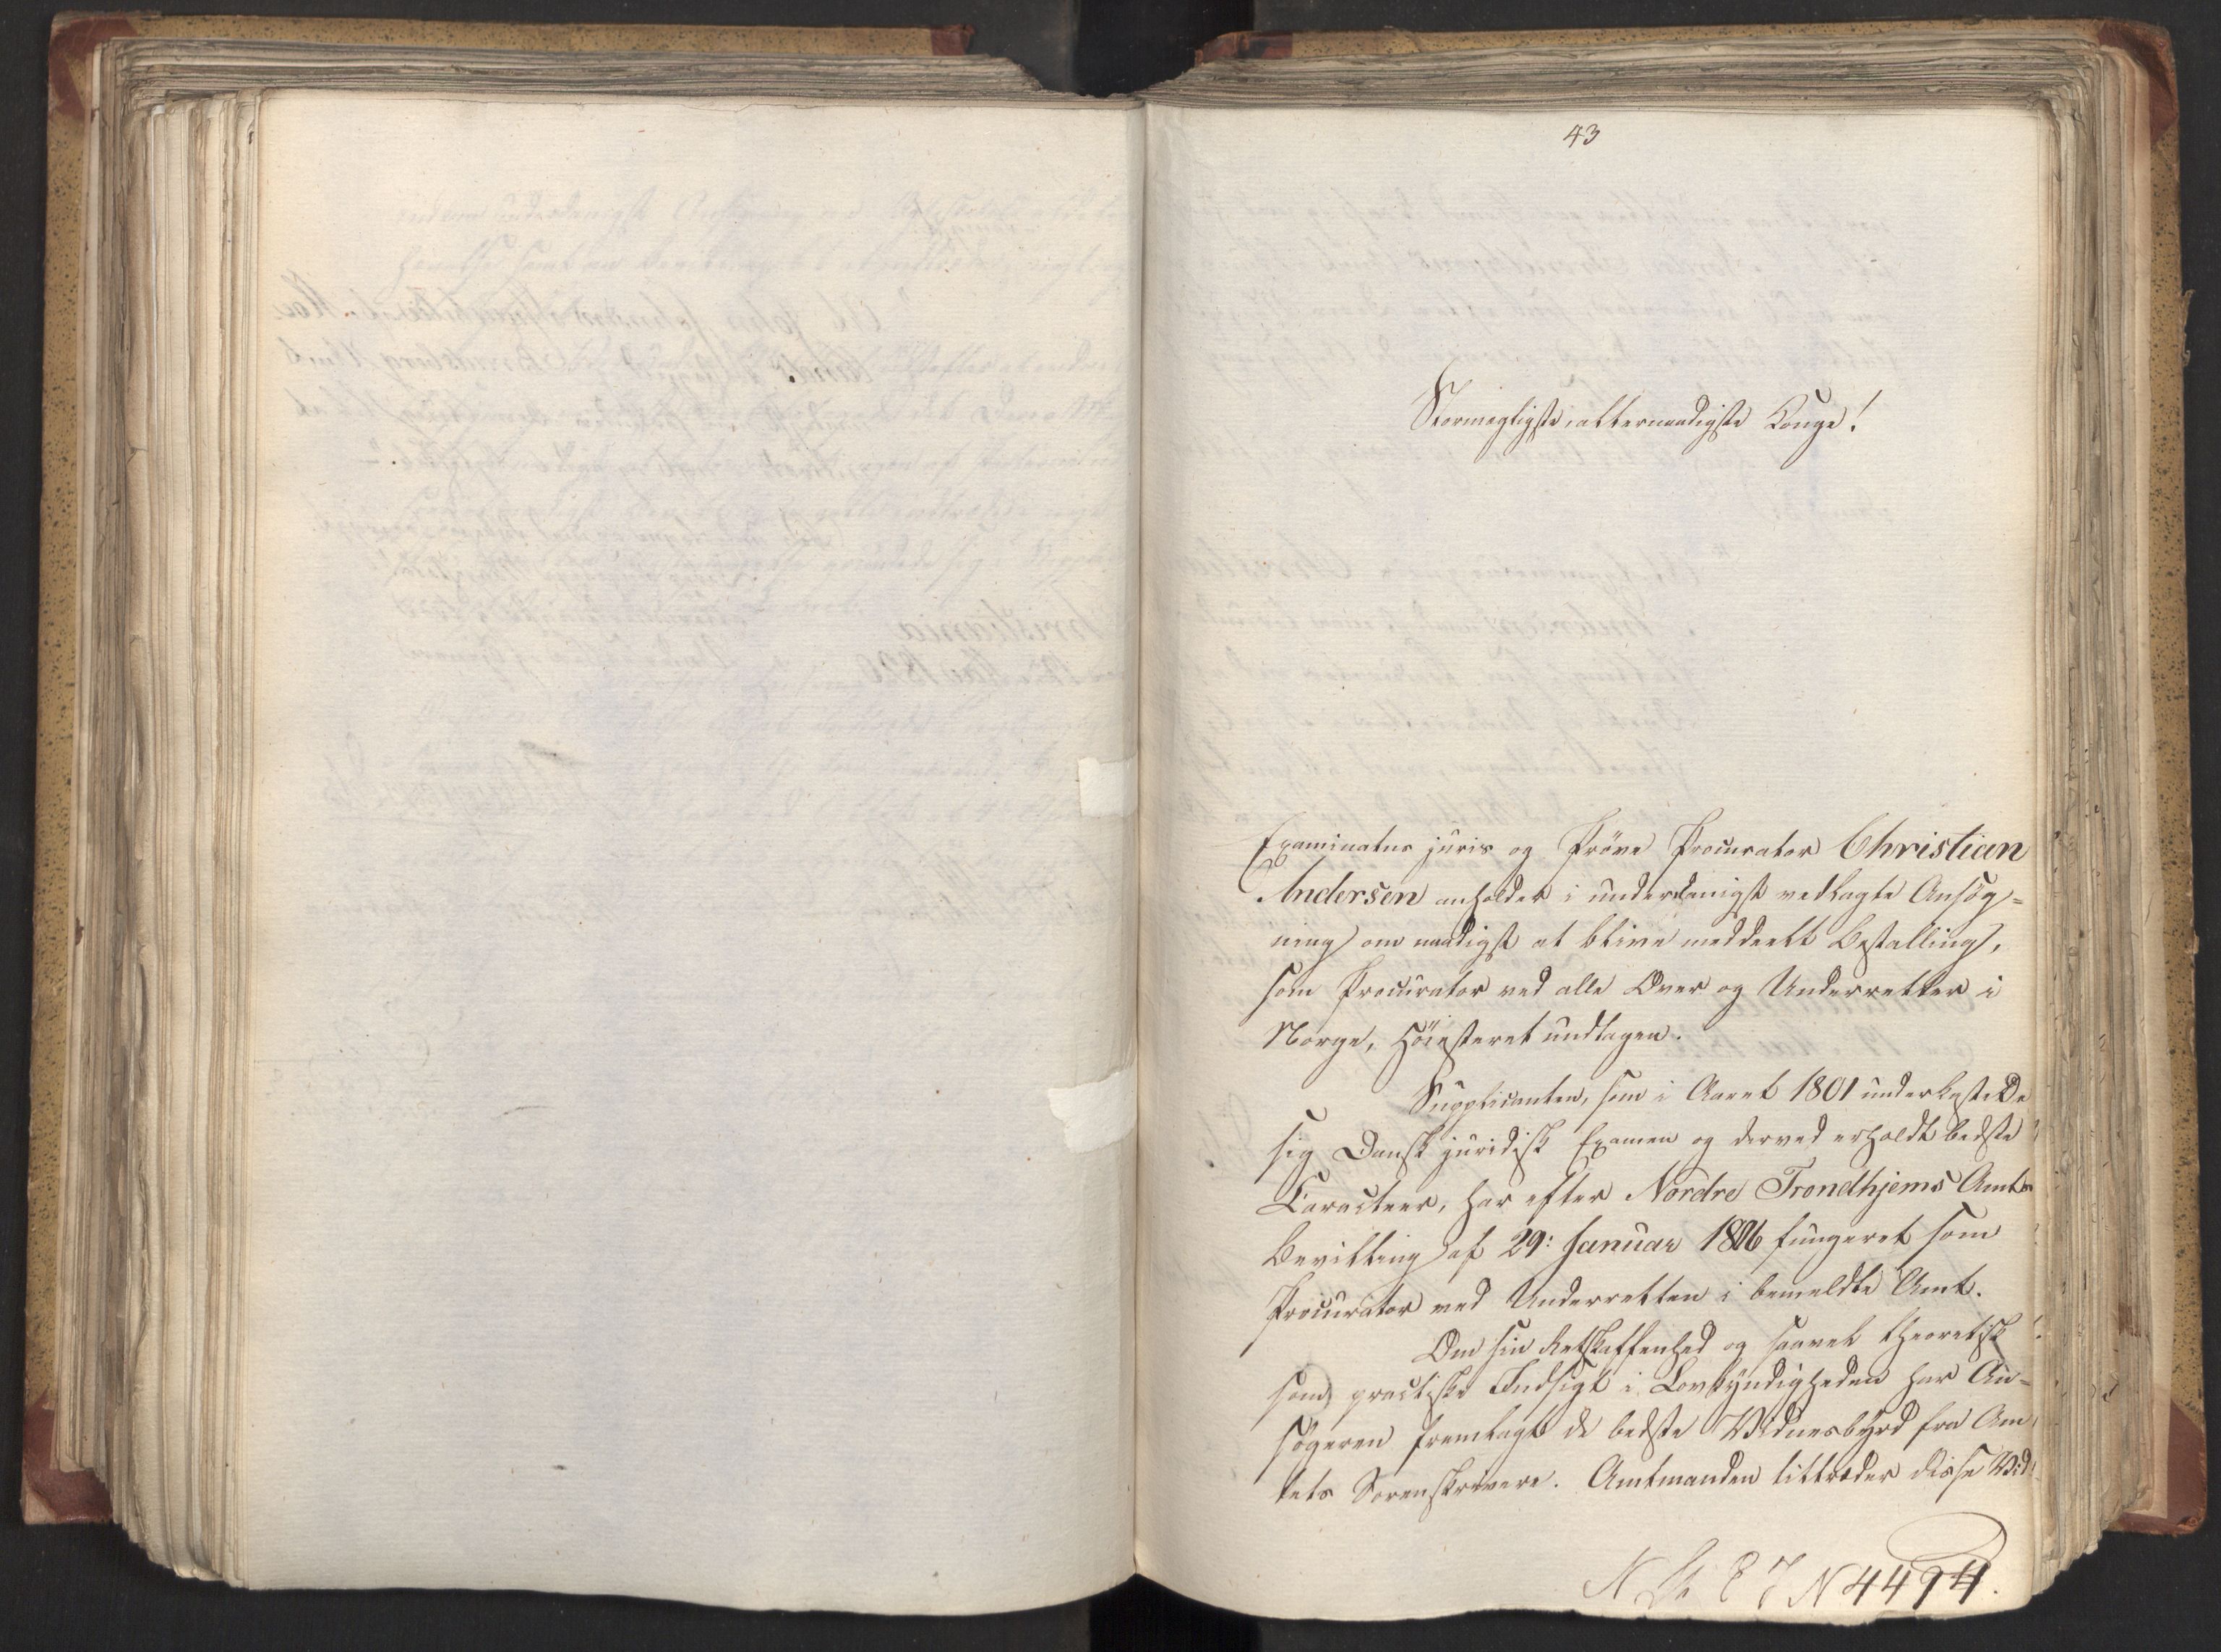 43
Stormægtigste, allernaadigste Konge!
Examinatus juris og Pröve Procurator Christian
Andersen anholder i underdanigst vedlagte Ansög-
ning om naadigst at blive meddeelt Bestalling,
som Procurator ved alle Over og Underretter i
Norge, Höiesteret undtagen.
Supplicanten, som i Aaret 1801 underkastede
sig Dansk juridisk Examen og derved erholdt bedste
Caracteer, har efter Nordre Trondhjems Amts
Bevilling af 29: Januar 1816 fungeret som
Procurator ved Underretten i bemeldte Amt.
Om sin Retskaffenhed og saavel theoretisk
som practiske Indsigt i Lovkyndigheden har An-
sögeren fremlagt de bedste Vidnesbyrd fra Am
tets Sorenskrivere. Amtmanden tiltræder disse Vid
N 4494.